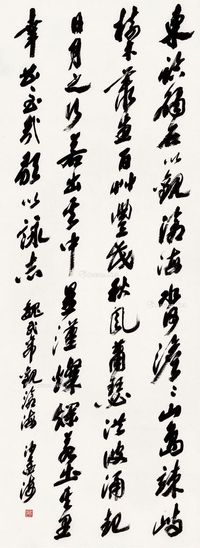 東臨碣石以觀滄海水何澹〻山島竦峙
樹木叢生百艸豐茂秋風蕭瑟洪波涌起
日月之行若出其中星漢燦爛若出其里
幸甚至哉歌以詠志 魏武帝觀滄海 沙孟海